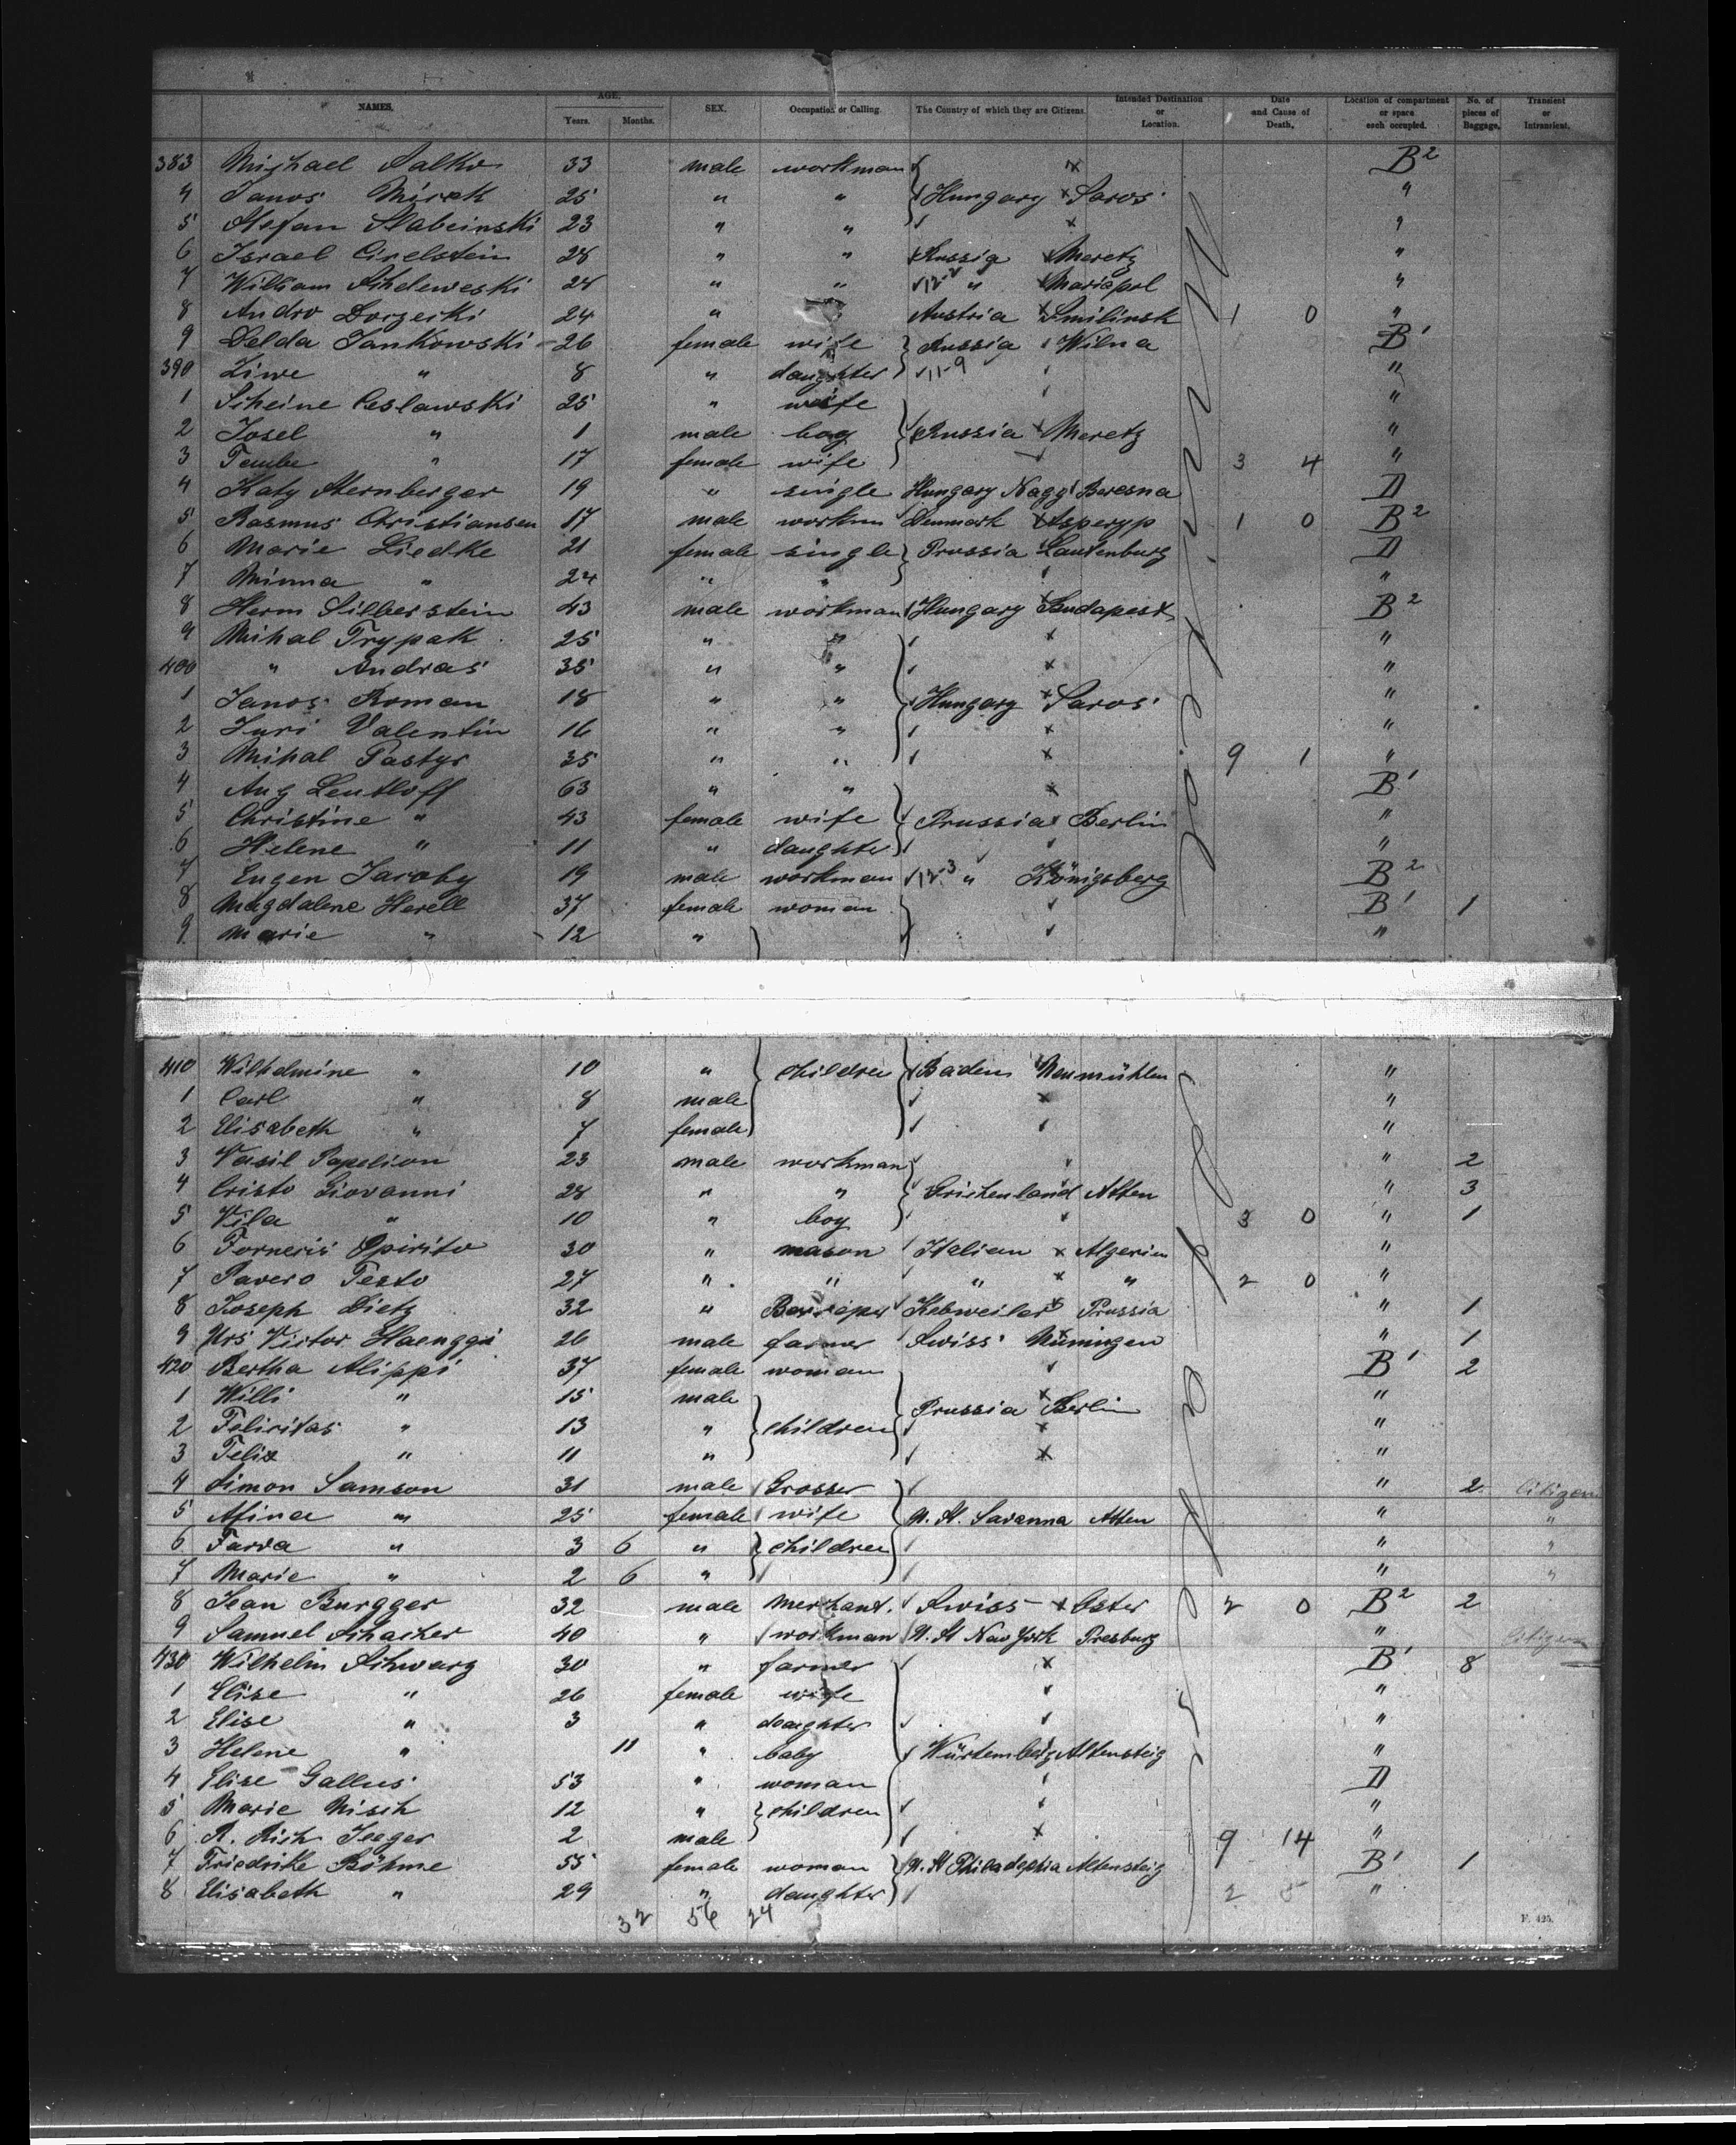 NAMES. AGE. Years. Months. SEX. Occupation or Calling. The Country of which they are Citizens. Intended Destination or Location. Date and Cause of Death. Location of compartment or space each occupied. No. of pieces of Baggage. Transient or Intransient.
383 Michael Salko 33 male workman B2
4 Janos Mirek 25 " " Hungary Saros "
5 Stefan Slabeinski 23 " " "
6 Israel Cirelstein 28 " " Russia Meretz "
7 William Schdeweski 24 " " 12-2 " Mariapol "
8 Andro Dorzecki 24 " " Austria Smilinsk 1 0 "
9 Selda Jankowski 26 female wife Russia Wilna B1
390 Liwe " 8 " daughter 11-9 "
1 Scheine Ceslawski 25 " wife "
2 Josel " 1 male boy Russia Meretz "
3 Taube " 17 female wife 3 4 "
4 Katy Sternberger 19 " single Hungary Nagy Beresna D
5 Rasmus Christiansen 17 male workm Denmark Asperyp 1 0 B2
6 Marie Liedke 21 female single Prussia Lautenburg D
7 Minna " 24 " " "
8 Herm Silberstein 43 male workman Hungary Budapest B2
9 Mihal Trypak 25 " " "
400 " Andras 35 " " "
1 Janos Roman 18 " " Hungary Saros "
2 Juri Valentin 16 " " "
3 Mihal Pastyr 35 " " 9 1 "
4 Aug Leutloff 63 " " B1
5 Christine " 43 female wife Prussia Berlin "
6 Helene " 11 " daughter "
7 Eugen Jacoby 19 male workman 12-3 " Königsberg B2
8 Magdalene Herell 37 female woman B1 1
9 Marie " 12 " "
410 Wilhelmine " 10 " children Baden Neumühlen "
1 Carl " 8 male "
2 Elisabeth " 7 female "
3 Vasil Papelion 23 male workman " 2
4 Cristo Giovanni 28 " " Grichenland Atten " 3
5 Vila " 10 " boy 3 0 " 1
6 Forneris Spirito 30 " mason Italien Algerien "
7 Savero Testo 27 " " " " 2 0 "
8 Joseph Dietz 32 " Kebweiler Prussia " 1
9 Urs Victor Haenggi 26 male farmer Swiss Nüningen " 1
420 Bertha Alippi 37 female woman B1 2
1 Willi " 15 male Prussia Berlin "
2 Felicitas " 13 " children "
3 Felix " 11 " "
4 Simon Samson 31 male Grosser " 2 Citizen
5 Afina " 25 female wife U. St. Savanna Atten " "
6 Farva " 3 6 " children " "
7 Marie " 2 6 " " "
8 Jean Burgger 32 male Merchant. Swiss Oster 2 0 B2 2
9 Samuel Schacher 40 " workman U. St New York Presburg " Citizen
430 Wilhelm Schwarz 30 " farmer B1 8
1 Elise " 26 female wife "
2 Elise " 3 " daughter "
3 Helene " 11 " baby Würtemberg Altensteig "
4 Elise Gallus 53 " woman D
5 Marie Nisch 12 " children "
6 R. Rich Jeeger 2 male 9 14 "
7 Friedrike Böhme 55 female woman U. St Philadelphia Altensteig B1 1
8 Elisabeth " 29 " daughter 2 5 "
32 56 24
F. 425.